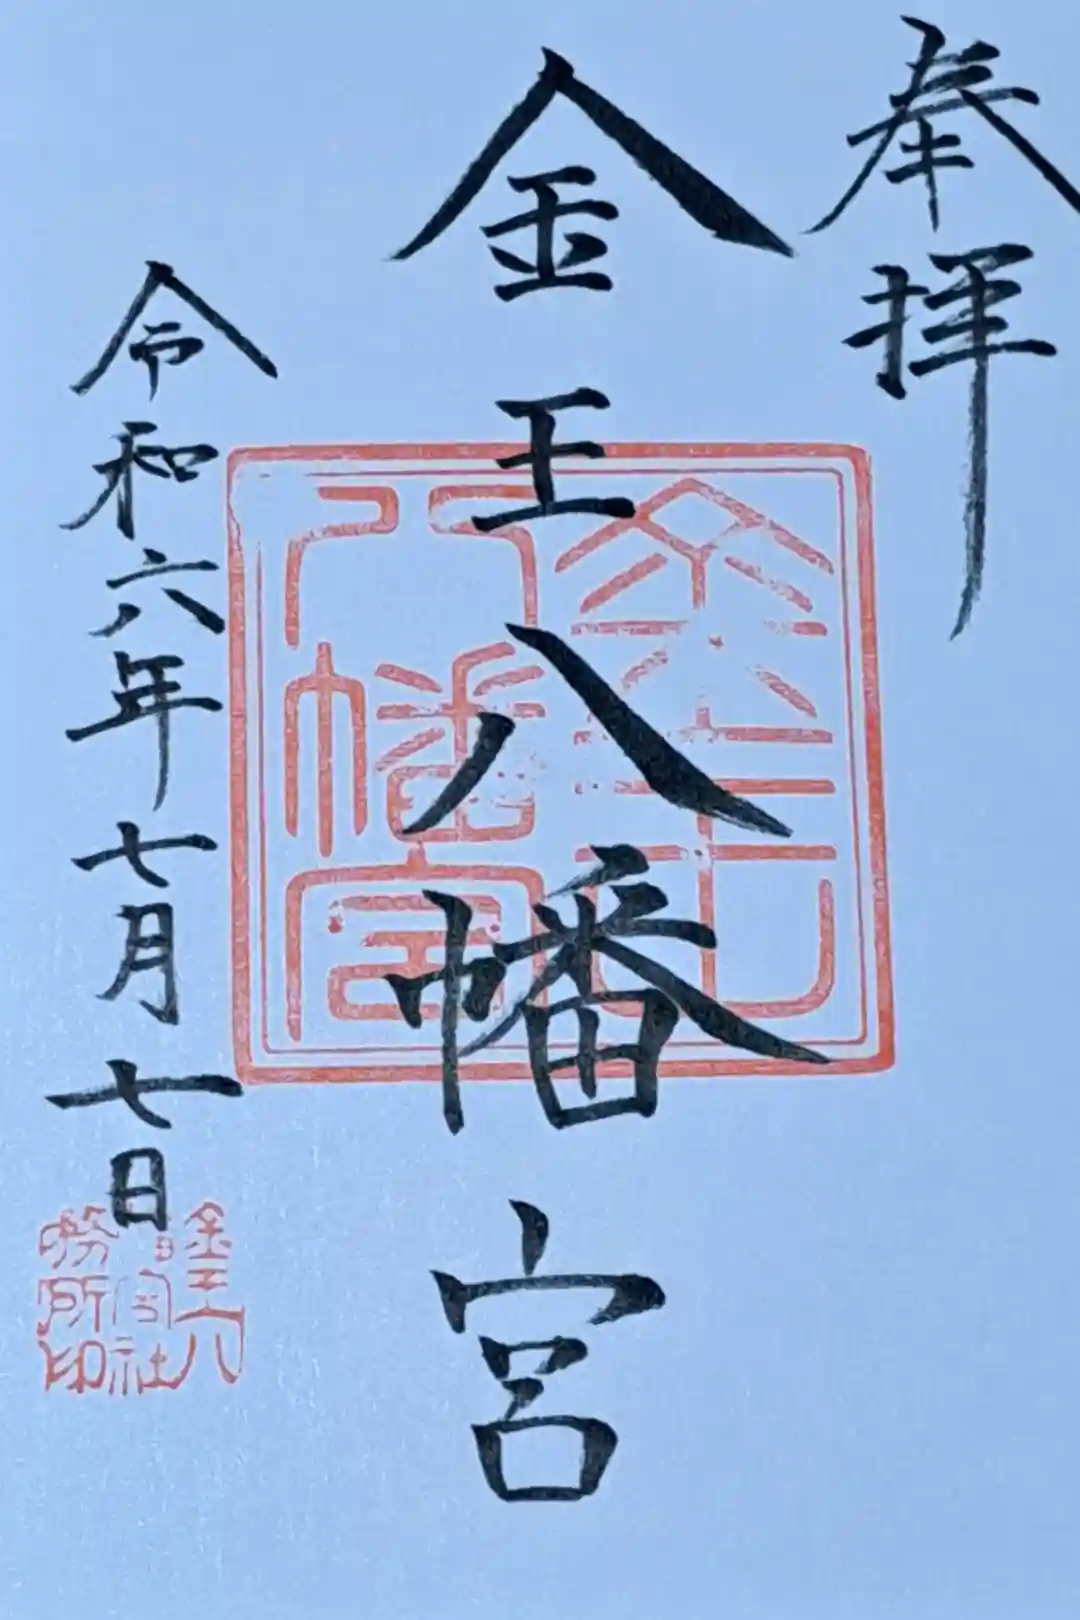 奉拝
金王八幡宮
令和六年七月七日
金王八
幡宮社
務所印